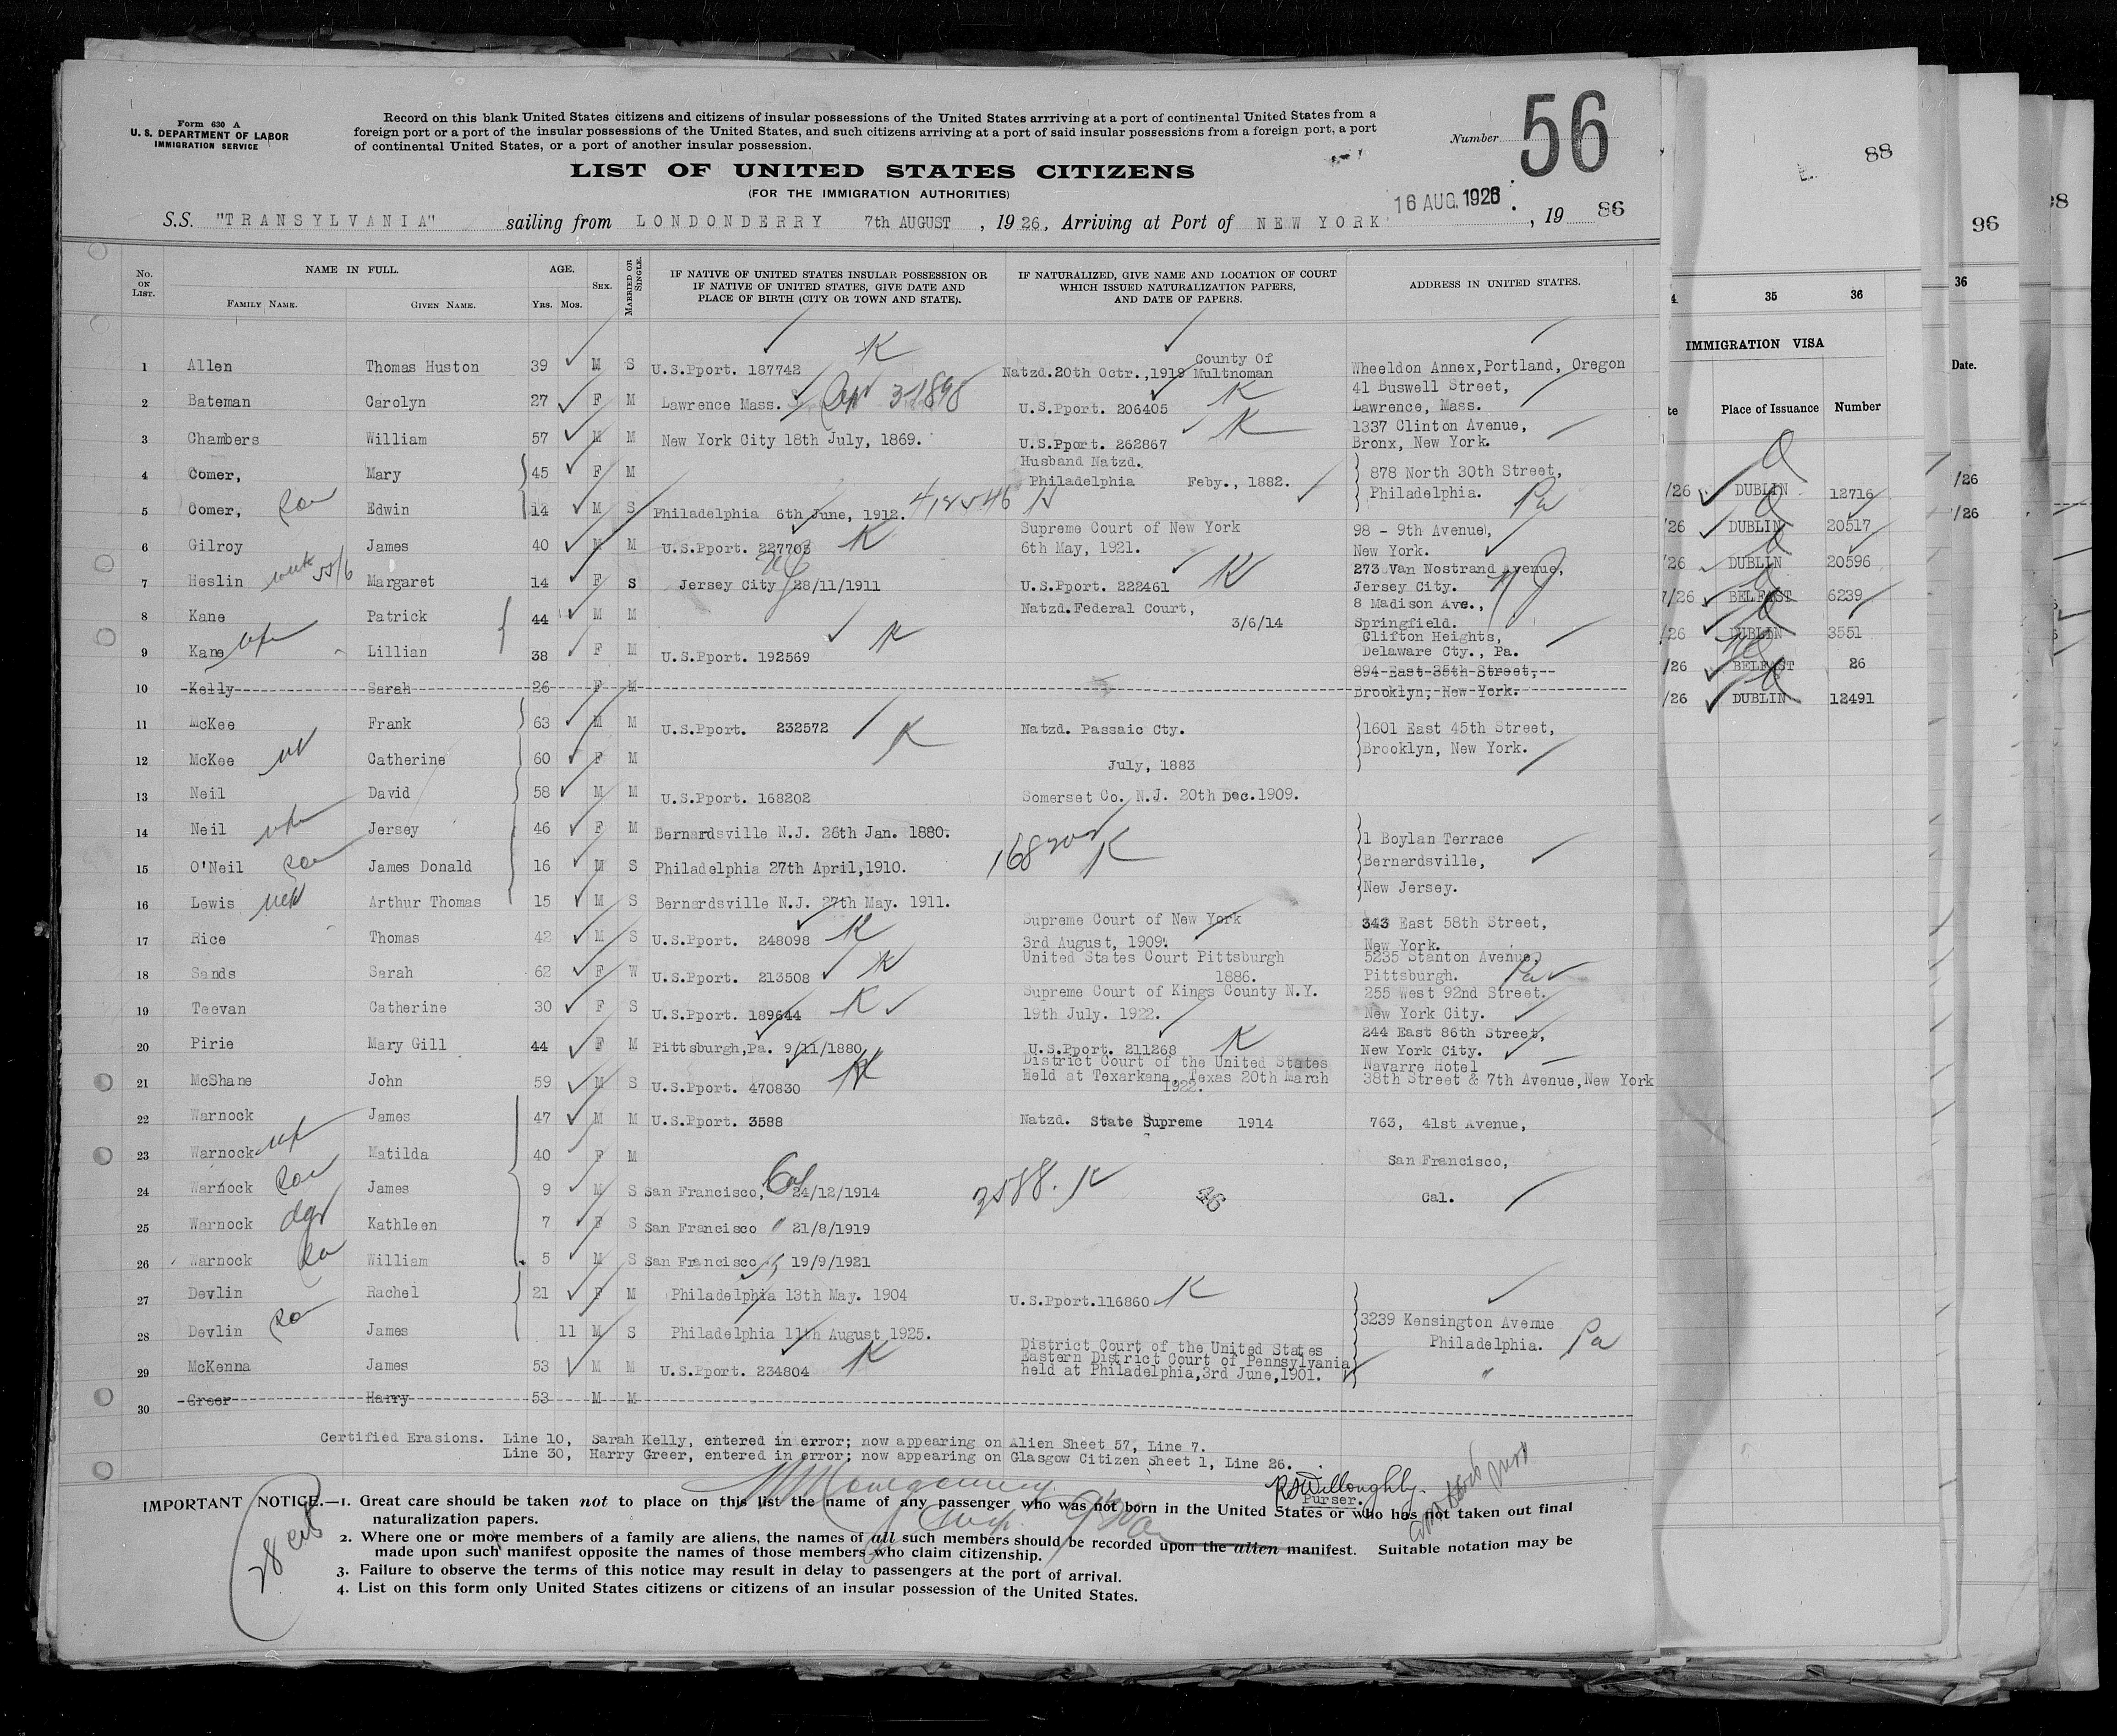 Form 630 A
U. S. DEPARTMENT OF LABOR
IMMIGRATION SERVICE
Record on this blank United States citizens and citizens of insular possessions of the United States arrriving at a port of continental United States from a
foreign port or a port of the insular possessions of the United States, and such citizens arriving at a port of said insular possessions from a foreign port, a port
of continental United States, or a port of another insular possession.
Number 56
LIST OF UNITED STATES CITIZENS
(FOR THE IMMIGRATION AUTHORITIES)
S.S. "TRANSYLVANIA" sailing from LONDONDERRY 7th AUGUST, 1926, Arriving at Port of NEW YORK 16 AUG. 1926, 19 86
No. ON LIST. NAME IN FULL. FAMILY NAME. GIVEN NAME. AGE. YRS. MOS. SEX. MARRIED OR SINGLE. IF NATIVE OF UNITED STATES INSULAR POSSESSION OR IF NATIVE OF UNITED STATES, GIVE DATE AND PLACE OF BIRTH (CITY OR TOWN AND STATE). IF NATURALIZED, GIVE NAME AND LOCATION OF COURT WHICH ISSUED NATURALIZATION PAPERS, AND DATE OF PAPERS. ADDRESS IN UNITED STATES.
1 Allen Thomas Huston 39 M S U.S.Pport. 187742 K Natzd.20th Octr.,1919 County Of Multnoman Wheeldon Annex,Portland, Oregon
2 Bateman Carolyn 27 F M Lawrence Mass. Apr 3-1898 U.S.Pport. 206405 K 41 Buswell Street, Lawrence, Mass.
3 Chambers William 57 M M New York City 18th July, 1869. U.S.Pport. 262867 K 1337 Clinton Avenue, Bronx, New York.
4 Comer, Mary 45 F M Husband Natzd. Philadelphia Feby., 1882. 878 North 30th Street,
5 Comer, Son Edwin 14 M S Philadelphia 6th June, 1912. 412546 K Philadelphia. Pa
6 Gilroy James 40 M M U.S.Pport. 227703 K Supreme Court of New York 6th May, 1921. 98 - 9th Avenue, New York.
7 Heslin Margaret 14 F S Jersey City NJ 28/11/1911 U.S.Pport. 222461 K 273 Van Nostrand Avenue, Jersey City. N J
8 Kane Patrick 44 M M Natzd.Federal Court, 3/6/14 8 Madison Ave., Springfield.
9 Kane wife Lillian 38 F M U.S.Pport. 192569 K Clifton Heights, Delaware Cty., Pa.
10 Kelly Sarah 26 F M 894 East 35th Street, Brooklyn, New York.
11 McKee Frank 63 M M U.S.Pport. 232572 K Natzd. Passaic Cty. 1601 East 45th Street,
12 McKee Catherine 60 F M July, 1883 Brooklyn, New York.
13 Neil David 58 M M U.S.Pport. 168202 Somerset Co. N.J. 20th Dec.1909.
14 Neil wife Jersey 46 F M Bernardsville N.J. 26th Jan. 1880. 168202 K 1 Boylan Terrace
15 O'Neil Son James Donald 16 M S Philadelphia 27th April,1910. Bernardsville,
16 Lewis Arthur Thomas 15 M S Bernardsville N.J. 27th May. 1911. New Jersey.
17 Rice Thomas 42 M S U.S.Pport. 248098 K Supreme Court of New York 3rd August, 1909. 343 East 58th Street, New York.
18 Sands Sarah 62 F W U.S.Pport. 213508 K United States Court Pittsburgh 1886. 5235 Stanton Avenue, Pittsburgh. Pa
19 Teevan Catherine 30 F S U.S.Pport. 189644 K Supreme Court of Kings County N.Y. 19th July. 1922. 255 West 92nd Street. New York City.
20 Pirie Mary Gill 44 F M Pittsburgh,Pa. 9/11/1880 U.S.Pport. 211268 K 244 East 86th Street, New York City.
21 McShane John 59 M S U.S.Pport. 470830 K District Court of the United States Held at Texarkana, Texas 20th March 1922. Navarre Hotel 38th Street & 7th Avenue,New York
22 Warnock James 47 M M U.S.Pport. 3588 Natzd. State Supreme 1914 763, 41st Avenue,
23 Warnock wife Matilda 40 F M San Francisco,
24 Warnock Son James 9 M S San Francisco, Cal 24/12/1914 3588. K Cal.
25 Warnock dgr Kathleen 7 F S San Francisco " 21/8/1919
26 Warnock Son William 5 M S San Francisco 19/9/1921
27 Devlin Rachel 21 F M Philadelphia 13th May. 1904 U.S.Pport.116860 K
28 Devlin Son James 11 M S Philadelphia 11th August 1925. 3239 Kensington Avenue Philadelphia. Pa
29 McKenna James 53 M M U.S.Pport. 234804 K District Court of the United States Eastern District Court of Pennsylvania held at Philadelphia,3rd June,1901. "
30 Greer Harry 53 M M
Certified Erasions. Line 10, Sarah Kelly, entered in error; now appearing on Alien Sheet 57, Line 7.
Line 30, Harry Greer, entered in error; now appearing on Glasgow Citizen Sheet 1, Line 26.
Montgomery
RSWilloughby.
Purser.
28
IMPORTANT NOTICE.—1. Great care should be taken not to place on this list the name of any passenger who was not born in the United States or who has not taken out final
naturalization papers.
2. Where one or more members of a family are aliens, the names of all such members should be recorded upon the alien manifest. Suitable notation may be
made upon such manifest opposite the names of those members who claim citizenship.
3. Failure to observe the terms of this notice may result in delay to passengers at the port of arrival.
4. List on this form only United States citizens or citizens of an insular possession of the United States.
88
35 36
IMMIGRATION VISA
Place of Issuance Number
/26 DUBLIN 12716
/26 DUBLIN 20517
/26 DUBLIN 20596
/26 BELFAST 6239
/26 DUBLIN 3551
/26 BELFAST 26
/26 DUBLIN 12491
96
36
Date.
/26
/26
98